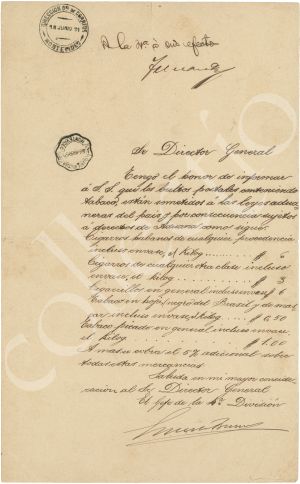 DIRECCION DE CORREOS
18 JUNIO 91
MONTEVIDEO
A la 4ª à sus efectos
Sr Director General
Tengo el honor de informar
à S. S. que los bultos postales conteniendo
tabaco, están sometidos à las leyes adua-
neras del país y por consecuencia sujetos
à derechos de Aduana como sigue:
Cigarros habanos de cualquier procedencia
incluso envase, el kilog. $ 6
Cigarros de cualquier otra clase incluso
envase, el kilog. $ 3
Cigarrillos en general incluso envase $ 1
Tabaco en hoja, negro del Brasil y de mas-
car incluso envase, el kilog. $ 0,50
Tabaco picado en general incluso envase,
el kilog. $ 1.00
A mas se cobra el 8% adicional sobre
todas estas mercancias
Saluda con mi mayor consider-
acion al Sr Director General
El jefe de la 4ª División